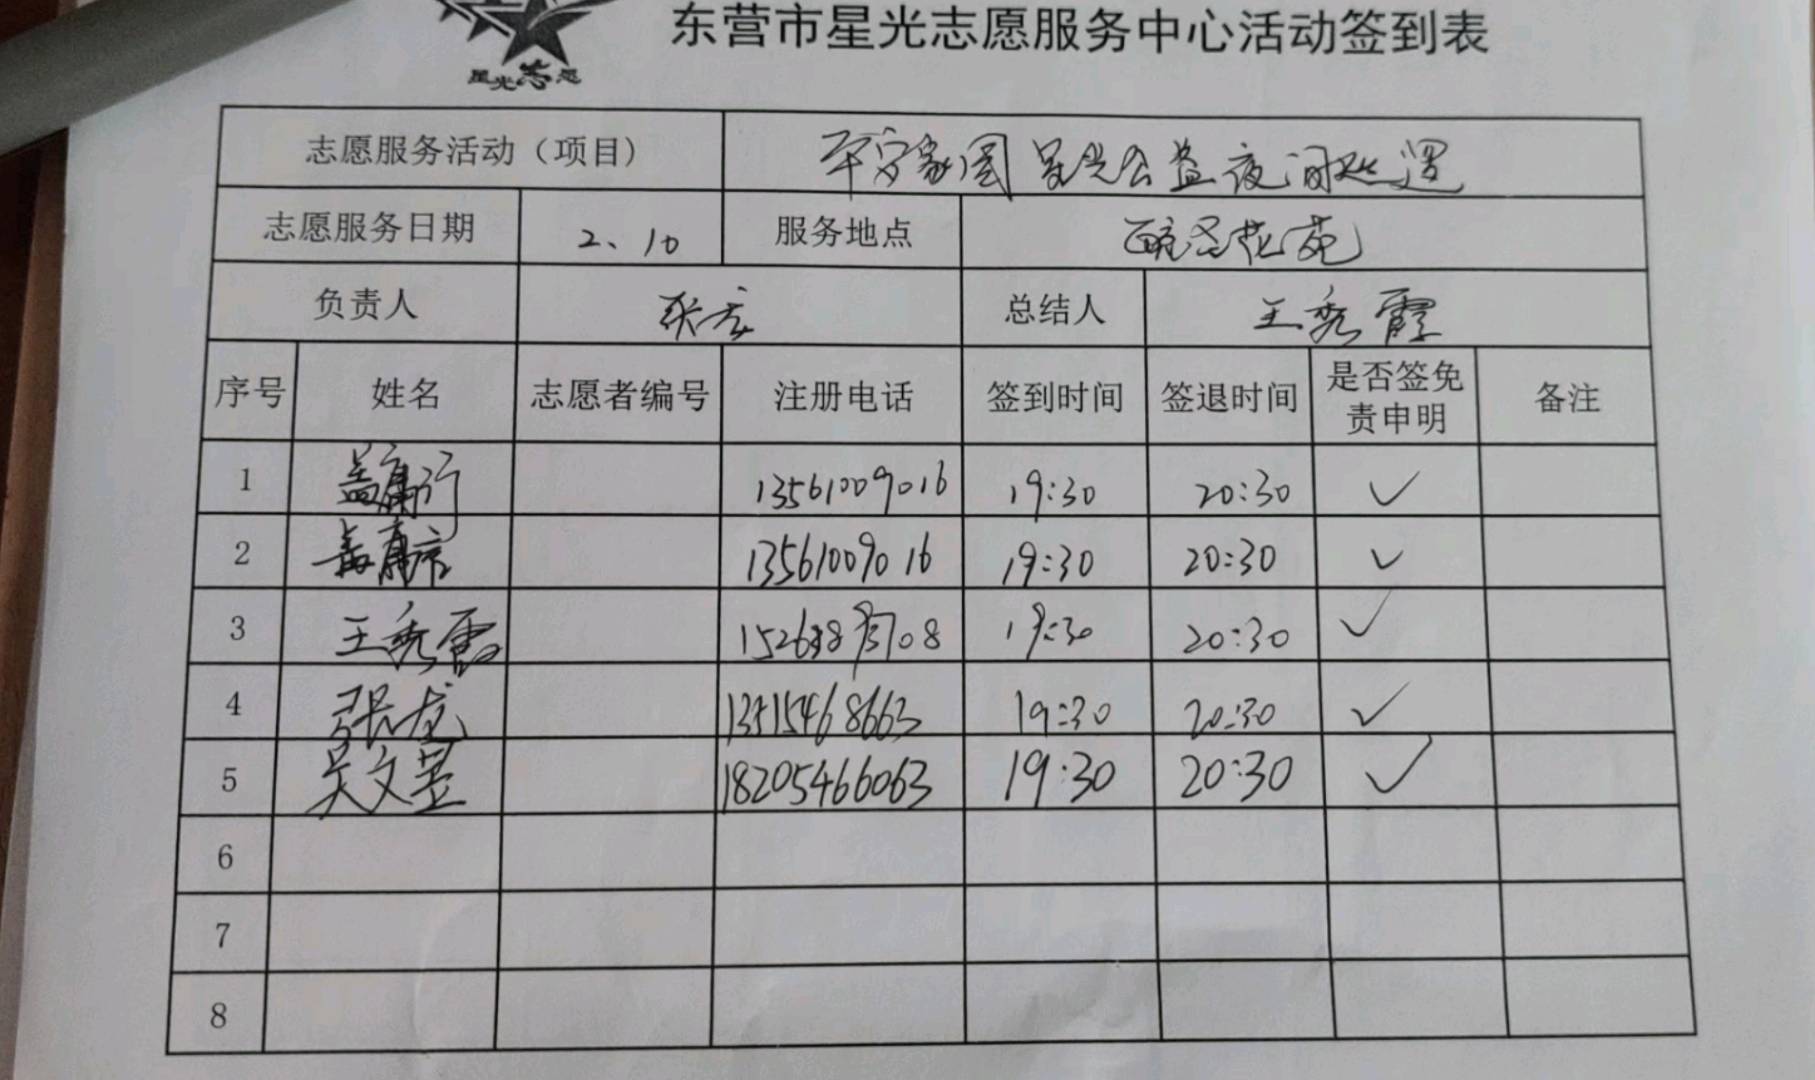 星光志愿
东营市星光志愿服务中心活动签到表
志愿服务活动（项目） 平安家园星光公益夜间巡逻
志愿服务日期 2、10 服务地点 花苑
负责人 张龙 总结人 王秀霞
序号 姓名 志愿者编号 注册电话 签到时间 签退时间 是否签免责申明 备注
1 13561009016 19:30 20:30 ✓
2 13561009016 19:30 20:30 ✓
3 王秀霞 19:30 20:30 ✓
4 张龙 13515468663 19:30 20:30 ✓
5 吴文昱 18205466063 19:30 20:30 ✓
6
7
8